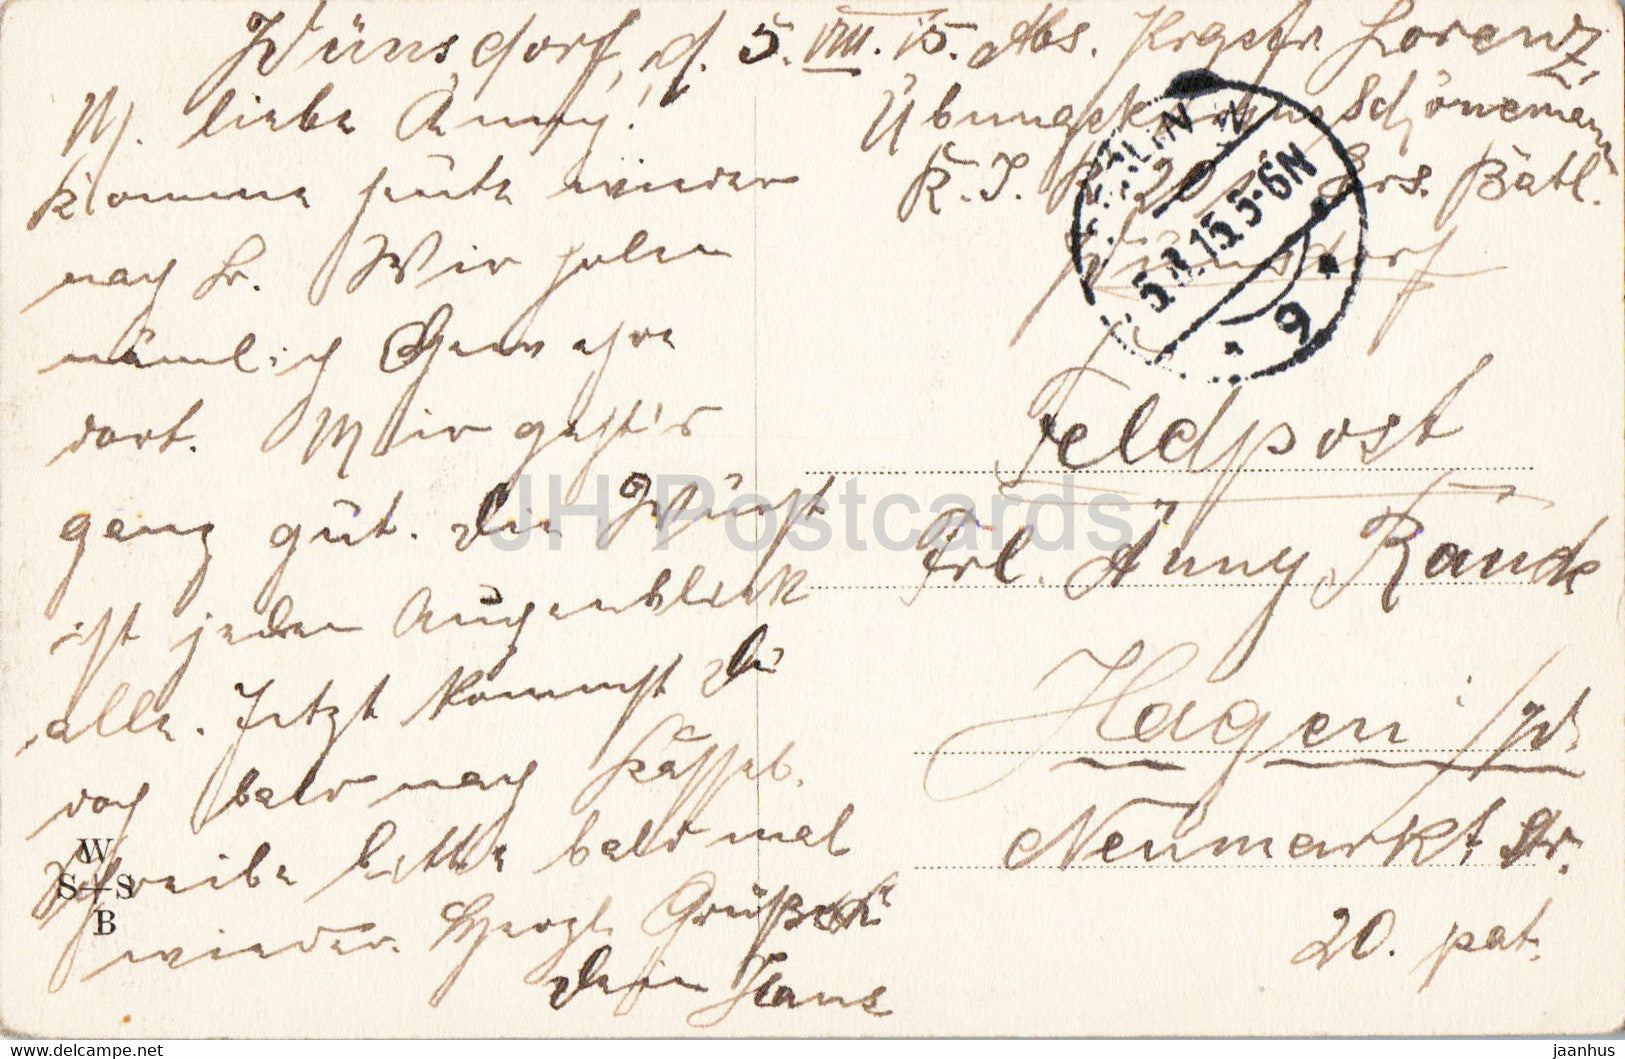 Wünsdorf, d. 5. VIII. 15.
M. liebe Anny!
Komme heute wieder
nach Hr. Wir holen
nämlich Gewehre
dort. Mir geht's
ganz gut. Die Wurst
ist jeden Augenblick
alle. Jetzt kommst Du
doch bald nach
Schreibe bitte bald mal
wieder. Herzl. Grüße
Dein Hans
W
S+S
B
Abs. Krgsfr. Lorenz,
Schönemann
R. I. R. 20, Ers. Batl.
Wünsdorf
BERLIN W
5.8.15.5-6N
* 9 *
Feldpost
Frl. Anny Raude
Hagen i/W.
Neumarkt Str.
20. pat.
JH Postcards
www.delcampe.net
jaanhus